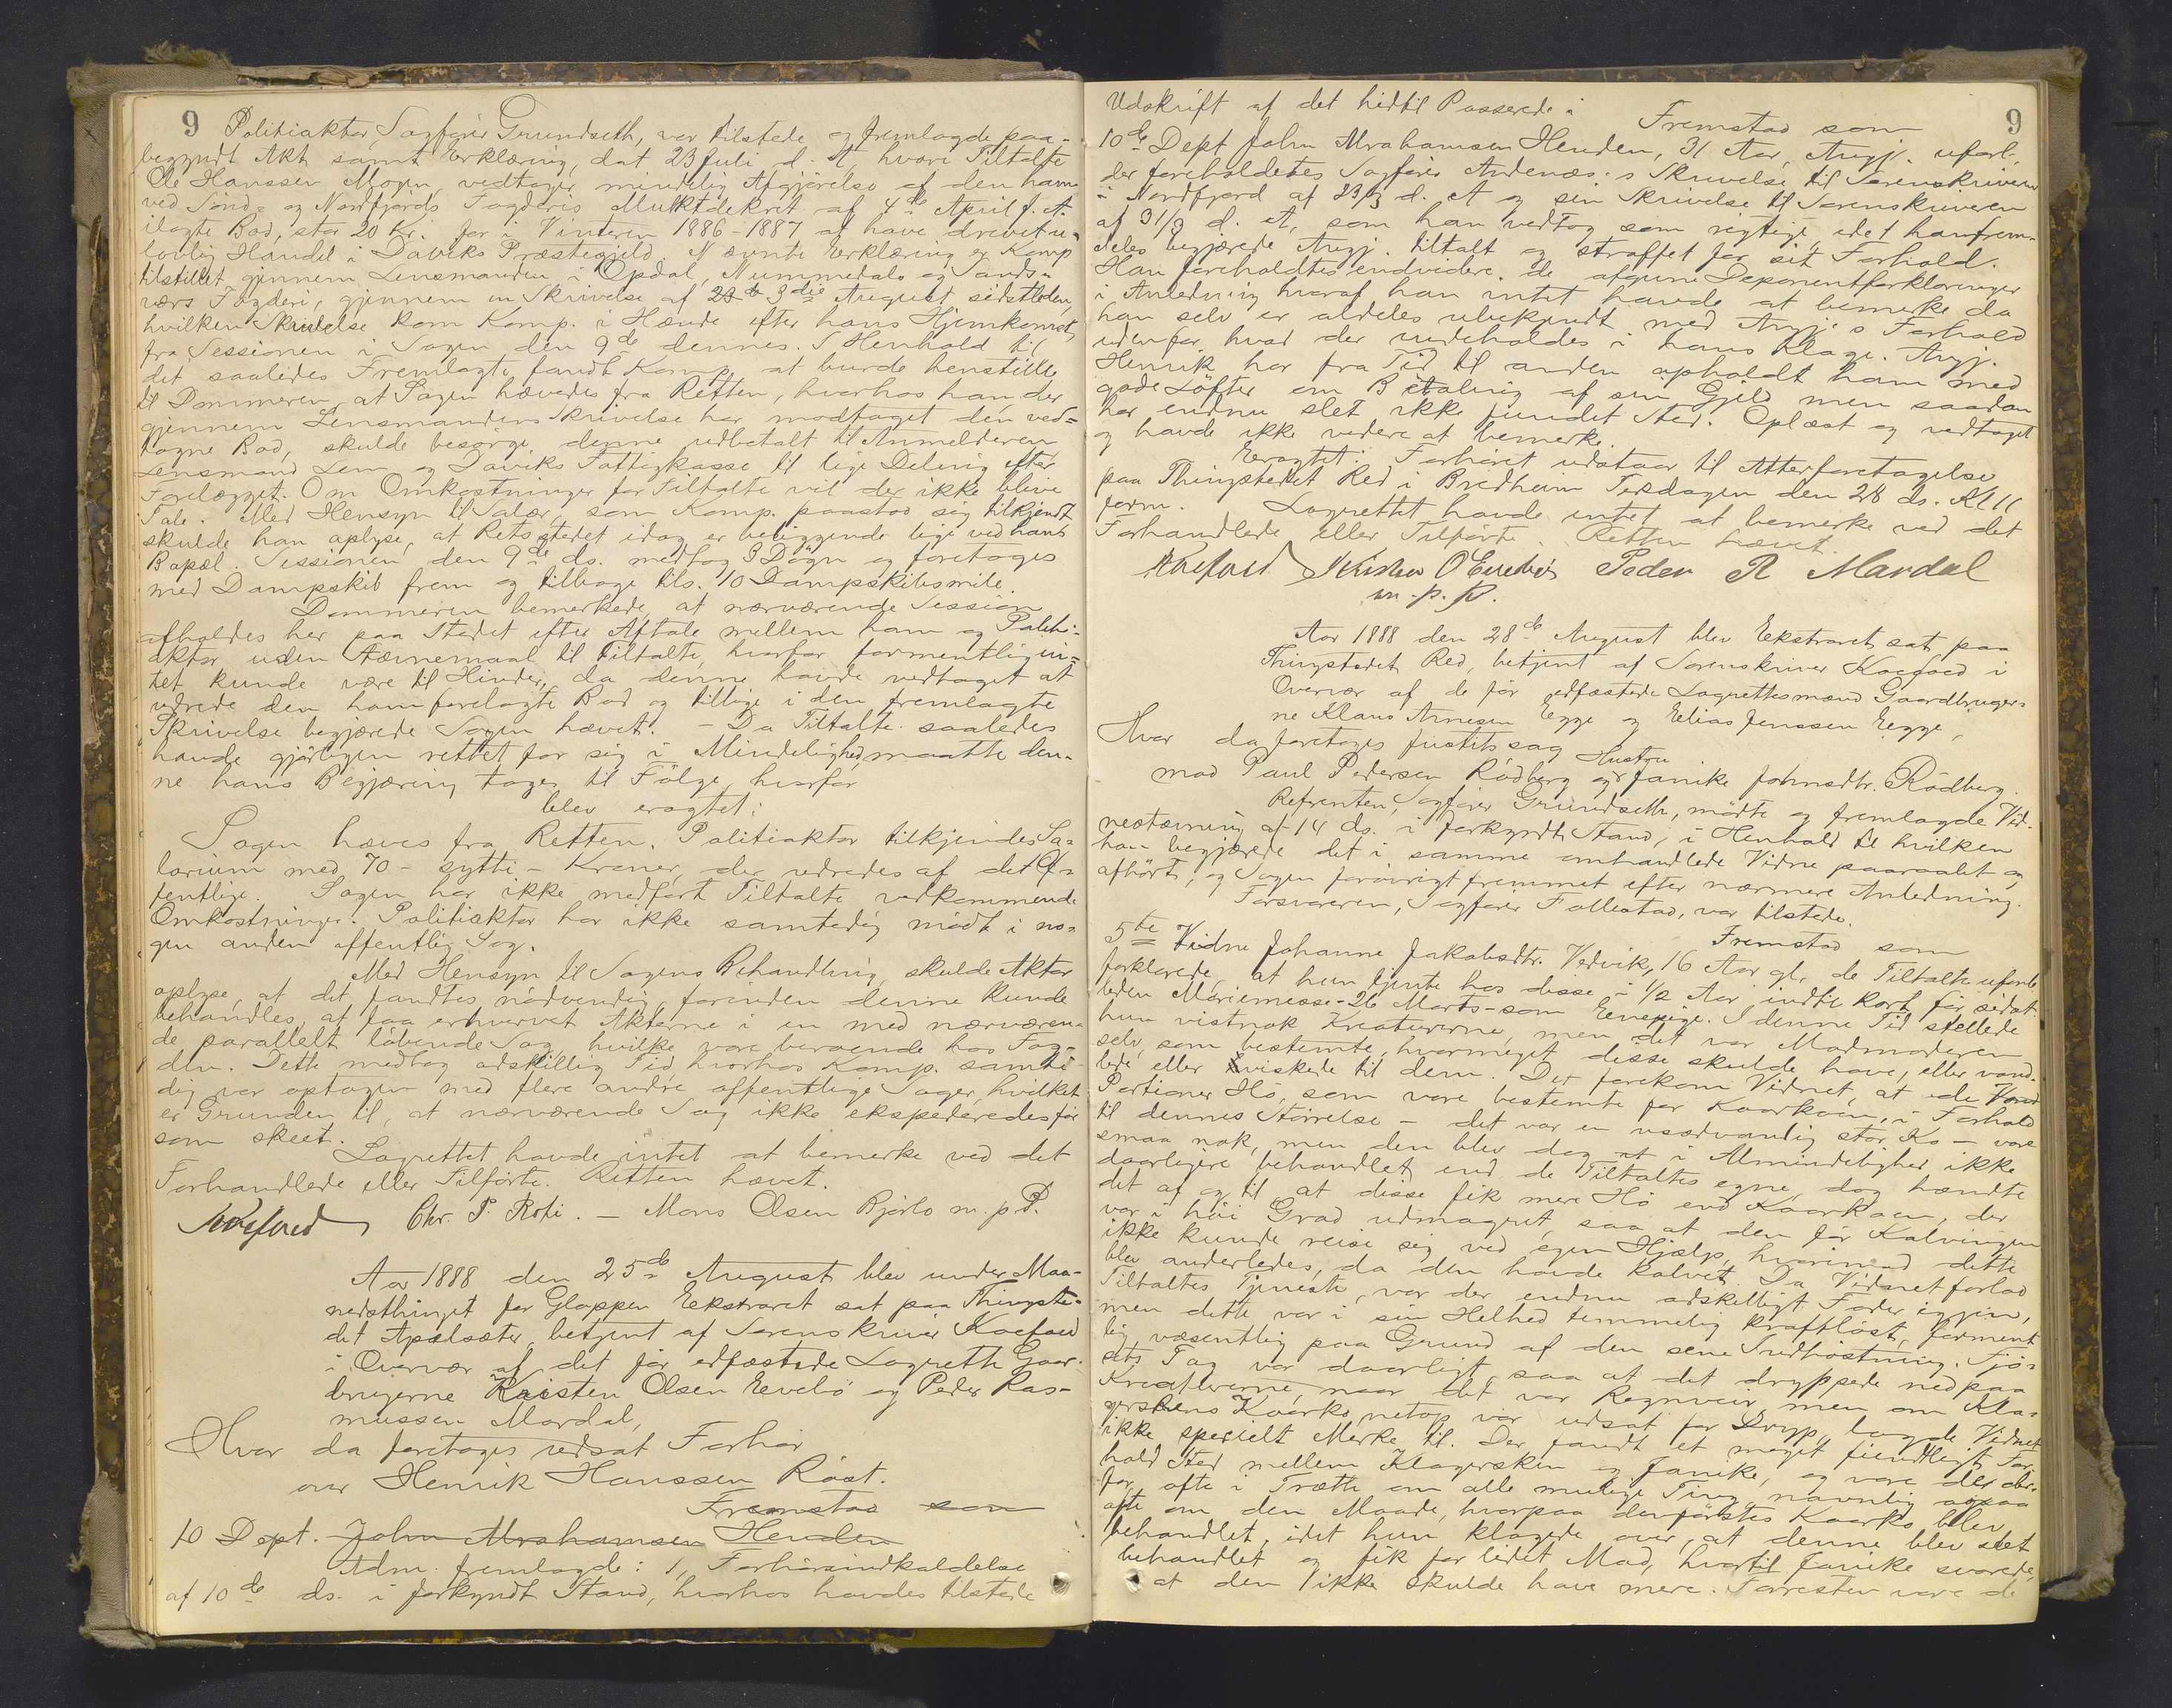 9
Politiaktor, Sagfører Grundseth, var tilstede og fremlagde paa-
begyndt Akt samt Erklæring, dat 23 Juli d. A, hvori Tiltalte
Ole Hanssen Mogen vedtager mindelig Afgjørelse af den ham
ved Sønd- og Nordfjords Fogderis Mulktdekret af 4de April f. A.
ilagte Bod, stor 20 Kr. for i Vinteren 1886-1887 at have drevet u-
lovlig Handel i Daviks Præstegjeld. Nævnte Erklæring er Komp
tilstillet gjennem Lensmanden i Opdal, Nummedals og Sands-
værs Fogderi, gjennem en Skrivelse af 23de 3die August sidstleden,
hvilken Skrivelse kom Komp. i Hænde efter hans Hjemkomst
fra Sessionen i Sagen den 9de dennes. I Henhold til
det saaledes Fremlagte fandt Komp. at burde henstille
til Dommeren, at Sagen hæves fra Retten, hvorhos han der
gjennem Lensmandens Skrivelse har modtaget den ved-
tagne Bod, skulde besørge denne udbetalt til Anmelderen
Lensmand Lem og Daviks Fattigkasse til lige Deling efter
Forelægget. Om Omkostninger for Tiltalte vil der ikke blive
Tale. Med Hensyn til Salær, som Komp. paastod sig tilkjendt
skulde han oplyse, at Retsstedet idag er beliggende lige ved hans
Bopæl. Sessionen den 9de ds. medtog 3 Døgn og foretoges
med Dampskib frem og tilbage tils. 10 Dampskibsmile.
Dommeren bemerkede, at nærværende Session
afholdes her paa Stedet efter Aftale mellem ham og Politi-
aktor uden Stævnemaal til Tiltalte, hvorfor formentlig in-
tet kunde være til Hinder, da denne havde vedtaget at
udrede den ham forelagte Bod og tillige i den fremlagte
Skrivelse begjærede Sagen hævet. – Da Tiltalte saaledes
havde gjørligen rettet for sig i Mindelighed, maatte den-
ne hans Begjæring tages til Følge, hvorfor
blev eragtet:
Sagen hæves fra Retten. Politiaktor tilkjendes Sa-
larium med 70 - sytti - Kroner, der udredes af det Of-
fentlige. Sagen har ikke medført Tiltalte vedkommende
Omkostninger. Politiaktor har ikke samtidig mødt i no-
gen anden offentlig Sag.
Med Hensyn til Sagens Behandling skulde Aktor
oplyse, at det fandtes nødvendig, forinden denne kunde
behandles, at faa erhvervet Akterne i en med nærværen-
de parallelt løbende Sag, hvilke vare beroende hos Fog-
den. Dette medtog adskillig Tid, hvorhos Komp. samti-
dig var optagen med flere andre offentlige Sager, hvilket
er Grunden til, at nærværende Sag ikke ekspederedes før
som skeet.
Lagrettet havde intet at bemerke ved det
Forhandlede eller Tilførte. Retten hævet.
Koefoed Chr. P. Roti. – Mons Olsen Bjørlo m. p. P.
Aar 1888 den 25de August blev under Maa-
nedsthinget for Gloppen Ekstraret sat paa Thingste-
det Apalsæter, betjent af Sorenskriver Koefoed
i Overvær af det før edfæstede Lagrette Gaar-
brugerne Kristen Olsen Evebø og Peder Ras-
mussen Mardal,
Hvor da foretages udsat Forhør
over Henrik Hanssen Røst.
Fremstod som
10 Dept. John Abrahamsen Henden
Adm. fremlagde: 1, Forhørsindkaldelse
af 10de ds. i forkyndt Stand, hvorhos havdes tilstede
9
Udskrift af det hidtil Passerede i
Fremstod som
10de Dept John Abrahamsen Henden, 31 Aar, Angj. uforb.
der foreholdetes Sagfører Andenæs's Skrivelse til Sorenskriveren
i Nordfjord af 23/3 d. A og sin Skrivelse til Sorenskriveren
af 31/3 d. A, som han vedtog som rigtige, idet han frem-
deles begjærede Angj. tiltalt og straffet for sit Forhold.
Han foreholdtes endvidere de afgivne Deponentforklaringer
i Anledning hvoraf han intet havde at bemerke da
han selv er aldeles ubekjendt med Angj's Forhold
udenfor hvad der indeholdes i hans Klage. Angj.
Henrik har fra Tid til anden opholdt ham med
gode Løfter om Betaling af sin Gjeld men saadan
har endnu slet ikke fundet Sted. Oplæst og vedtaget
og havde ikke videre at bemerke.
Eragtet: Forhøret udstaar til Atterforetagelse
paa Thingstedet Red i Bredheim Tirsdagen den 28 ds. Kl 11
form. Lagrettet havde intet at bemerke ved det
Forhandlede eller Tilførte. Retten hævet.
Koefoed Kristen O Evebø Peder R Mardal
m. p. P.
Aar 1888 den 28de August blev Ekstraret sat paa
Thingstedet Red, betjent af Sorenskriver Koefoed i
Overvær af de før edfæstede Lagrettesmænd Gaardbruger-
ne Klaus Arnesen Egge og Elias Jenssen Egge,
Hvor da foretoges Justitssag
Hustru
mod Paul Pedersen Rødberg og Janike Johnsdtr. Rødberg.
Referenten, Sagfører Grundseth, mødte og fremlagde Vid-
nestævning af 14 ds. i forkyndt Stand, i Henhold til hvilken
han begjærede det i samme omhandlede Vidne paaraabt og
afhørt, og Sagen forøvrigt fremmet efter nærmere Anledning.
Forsvareren, Sagfører Follestad, var tilstede.
Fremstod som
5te Vidne Johanne Jakobsdtr. Vedvik, 16 Aar gl., de Tiltalte uforb
forklarede, at hun tjente hos disse i 1/2 Aar indtil kort før sidst-
leden Mariemesse - 26 Marts - som Enepige. I denne Tid stellede
hun vistnok Kreaturerne, men det var Madmoderen
selv, som bestemte, hvormeget disse skulde have, eller vand-
lede eller hviskede til dem. Det forekom Vidnet, at de
Portioner Hø, som vare bestemte for Kaarkoen, i Forhold
til dennes Størrelse – det var en usædvanlig stor Ko – vare
smaa nok, men den blev dog i Almindelighed ikke
daarligere behandlet end de Tiltaltes egne, dog hændte
det af og til, at disse fik mere Hø end Kaarkoen, der
var i høi Grad udmagret, saa at den før Kalvingen
ikke kunde reise sig ved egen Hjælp, hvorimod dette
blev anderledes, da den havde kalvet. Da Vidnet forlod
Tiltaltes Tjeneste, var der endnu adskilligt Foder igjen,
men dette var i sin Helhed temmelig kraftløst, forment
lig væsentlig paa Grund af den sene Indhøstning. Fjø-
sets Tag var daarligt, saa at det dryppede ned paa
Kreaturerne, naar det var Regnveir, men om Kla-
gerskens Kaarko netop var udsat for Dryp, lagde Vidnet
ikke specielt Merke til. Der fandt et meget fiendtligt For-
hold Sted mellem Klagersken og Janike, og vare der der-
for ofte i Trætte om alle mulige Ting, navnlig ogsaa
ofte om den Maade, hvorpaa førstes Kaarko blev
behandlet, idet hun klagede over, at denne blev slet
behandlet og fik for lidet Mad, hvortil Janike svarede,
at den ikke skulde have mere. Forresten vare de